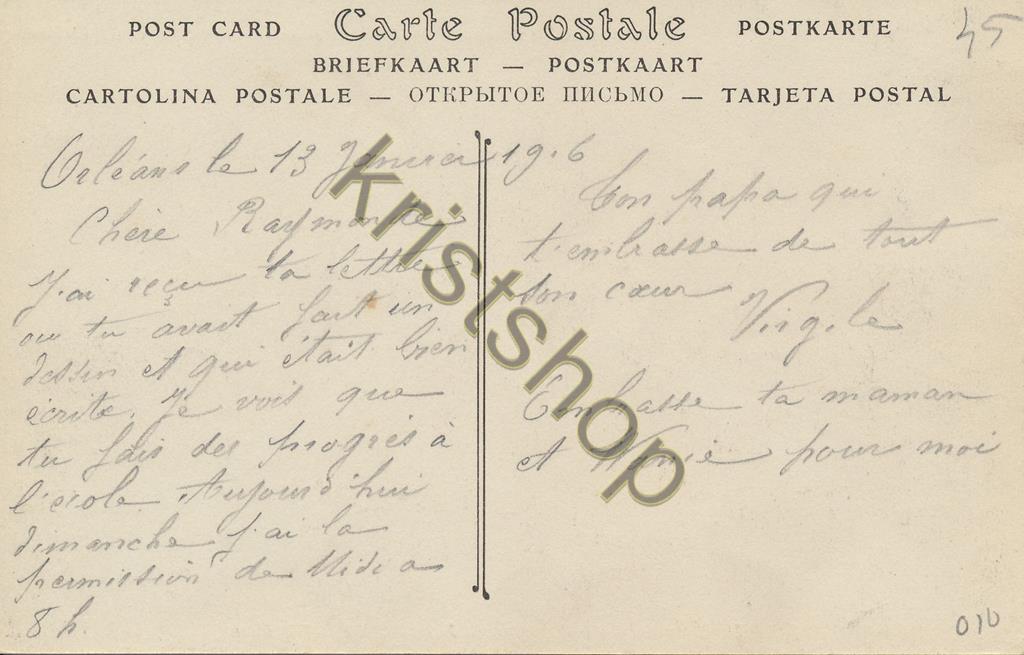 POST CARD Carte Postale POSTKARTE
BRIEFKAART — POSTKAART
CARTOLINA POSTALE — ОТКРЫТОЕ ПИСЬМО — TARJETA POSTAL
45
Orléans le 13 Janvier 19.6
Chère Raymonde
J'ai reçu ta lettre
ou tu avait fait un
dessin et qui était bien
écrite. Je vois que
tu fais des progrès à
l'école. Aujourd'hui
dimanche j'ai la
permission de Midi a
8 h.
Ton papa qui
t'embrasse de tout
son cœur
Virgile
Embrasse ta maman
et pour moi
kristshop
010